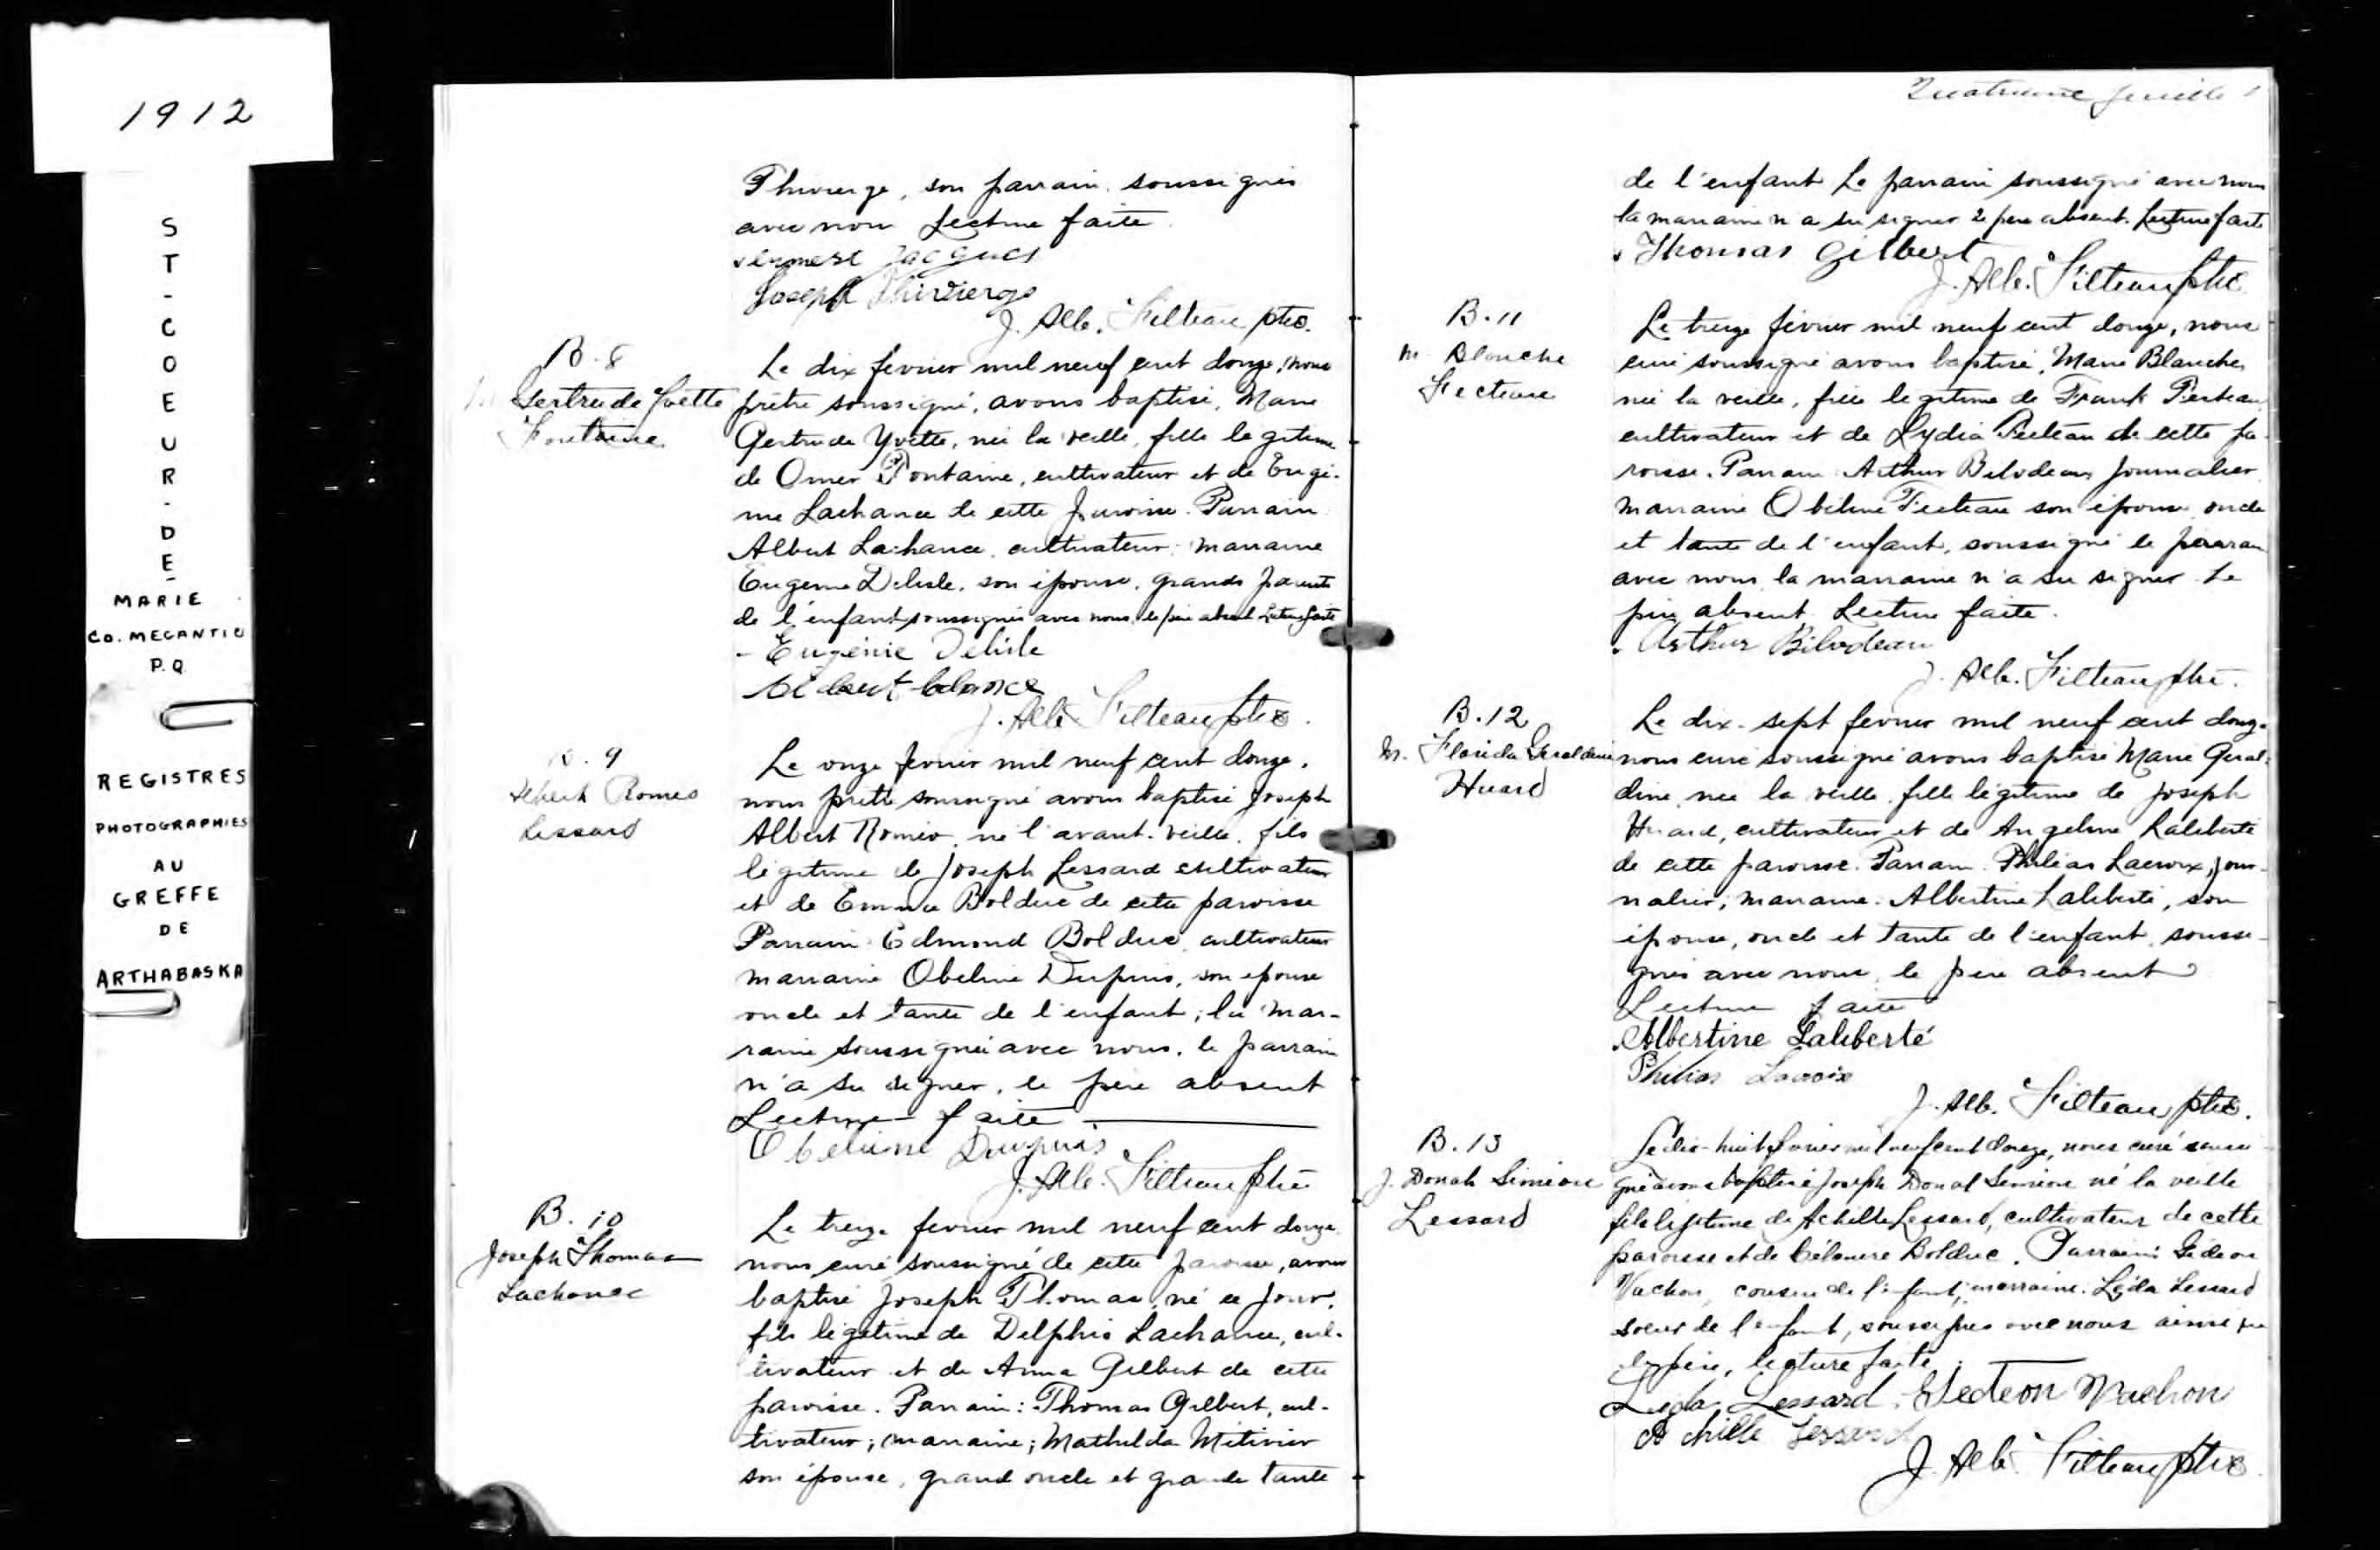 1912
ST-COEUR-DE
MARIE
CO. MEGANTIC
P.Q.
REGISTRES
PHOTOGRAPHIES
AU
GREFFE
DE
ARTHABASKA
Thivierge, son parrain, soussignés
avec nous Lecture faite
Jacques
Joseph Thivierge
J. Alb. Filteau ptre.
B. 8
Gertrude Yvette
Fontaine
Le dix fevrier mil neuf cent douze, nous
prêtre soussigné, avons baptisé, Marie
Gertrude Yvette, née la veille, fille legitime
de Omer Fontaine, cultivateur et de Eugé-
nie Lachance de cette paroisse. Parrain
Albert Lachance, cultivateur; marraine
Eugenie Delisle, son épouse, grands parents
de l'enfant soussignés avec nous, le père absent Lecture faite
Eugénie Delisle
J. Alb. Filteau ptre.
B. 9
Albert Romeo
Lessard
Le onze fevrier mil neuf cent douze,
nous prêtre soussigné avons baptisé Joseph
Albert Roméo, né l'avant-veille, fils
légitime de Joseph Lessard cultivateur
et de Emma Bolduc de cette paroisse
Parrain: Edmond Bolduc, cultivateur
marraine Obeline Dupuis, son epouse
oncle et tante de l'enfant; la mar-
raine soussignée avec nous, le parrain
n'a su signer, le père absent
Lecture faite
Obeline Dupuis
J. Alb. Filteau ptre
B. 10
Joseph Thomas
Lachance
Le treize fevrier mil neuf cent douze
nous curé soussigné de cette paroisse, avons
baptisé Joseph Thomas, né ce jour,
fils légitime de Delphis Lachance, cul-
tivateur et de Anna Gilbert de cette
paroisse. Parrain: Thomas Gilbert, cul-
tivateur; marraine; Mathilda Métivier
son épouse, grand oncle et grande tante
de l'enfant Le parrain soussigné avec nous
la marraine n'a su signer le père absent. Lecture faite
Thomas Gilbert
J. Alb. Filteau ptre
B. 11
M. Blanche
Fecteau
Le treize février mil neuf cent douze, nous
curé soussigné avons baptisé, Marie Blanche,
née la veille, fille legitime de Frank Fecteau
cultivateur et de Lydia Fecteau de cette pa-
roisse. Parrain: Arthur Bilodeau journalier
marraine Obéline Fecteau son épouse, oncle
et tante de l'enfant, soussigné le parrain
avec nous, la marraine n'a su signer. Le
père absent. Lecture faite.
Arthur Bilodeau
J. Alb. Filteau ptre.
B. 12
M. Florida Geraldine
Huard
Le dix-sept fevrier mil neuf cent douze
nous curé soussigné avons baptisé Marie Geral-
dine, née la veille, fille légitime de Joseph
Huard, cultivateur et de Angeline Laliberté
de cette paroisse. Parrain: Philias Lacroix, jour-
nalier; marraine: Albertine Laliberté, son
épouse, oncle et tante de l'enfant, soussi-
gnés avec nous, le père absent
Lecture faite
Albertine Laliberté
Philias Lacroix
J. Alb. Filteau ptre.
B. 13
J. Donat Siméon
Lessard
Le dix-huit février mil neuf cent douze, nous curé soussi
gné avons baptisé Joseph Donat Siméon né la veille
fils légitime de Achille Lessard, cultivateur de cette
paroisse et de Bolduc. Parrain: Gédéon
Vachon, cousin de l'enfant; marraine: Léda Lessard
soeur de l'enfant, soussignés avec nous ainsi que
le père, lecture faite.
Léda Lessard. Gédéon Vachon
Achille Lessard
J. Alb. Filteau ptre